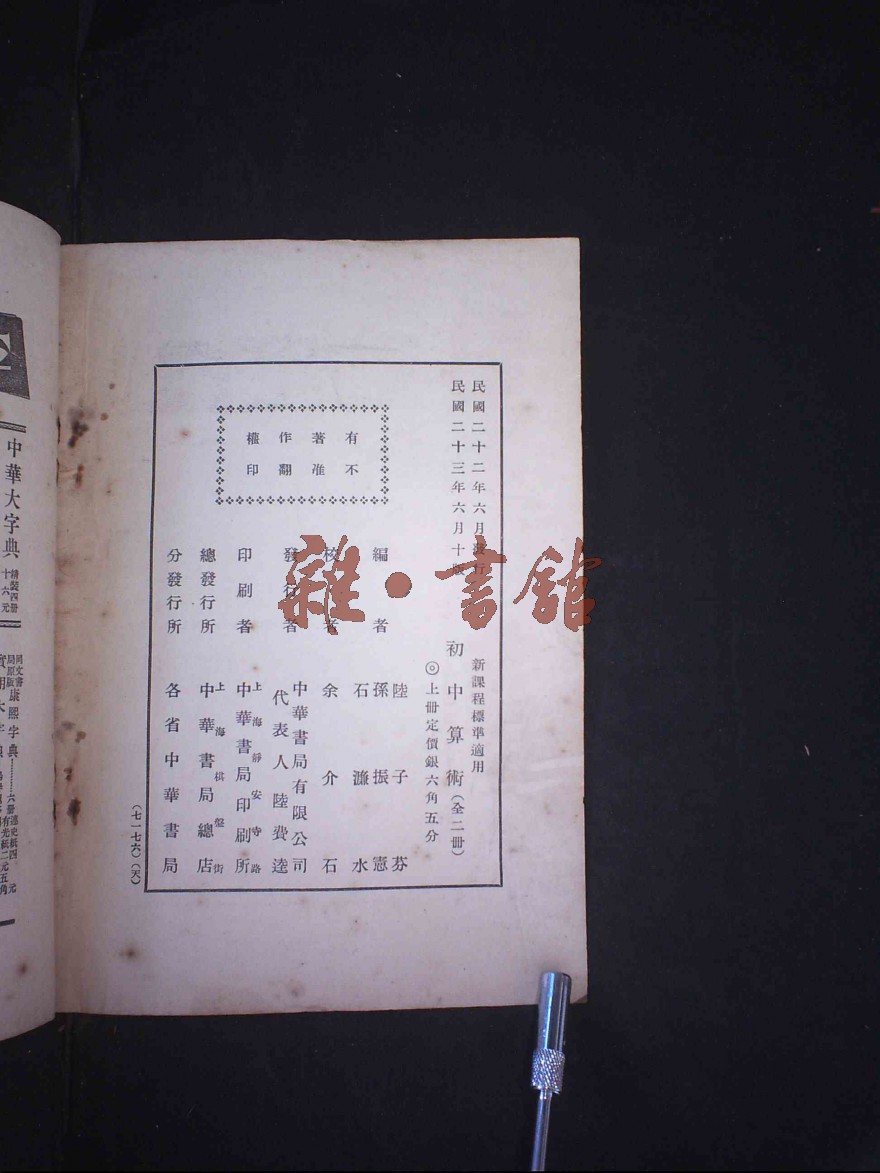 民國二十二年六月發行
民國二十三年六月十版
新課程標準適用
初中算術(全二冊)
◎上冊定價銀六角五分
編者
陸子芬
孫振憲
石濂水
校者
余介石
發行者
中華書局有限公司
代表人陸費逵
印刷者
上海靜安寺路
中華書局印刷所
總發行所
上海棋盤街
中華書局總店
分發行所
各省中華書局
有不
著准
作翻
權印
(七一七六)(天)
雜·書館
中華大字典
精裝四冊
十六元
同文書
局原版
康熙字典
六冊